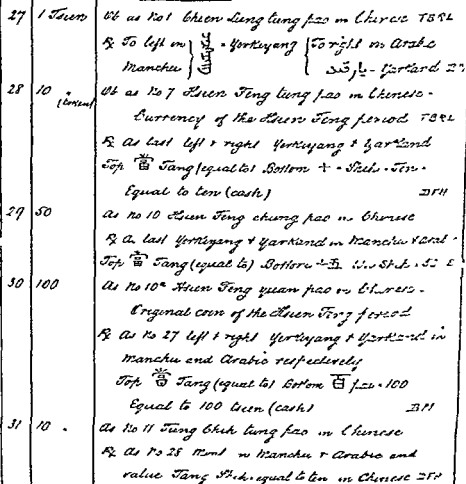 27 1 Tsien Ob as No 1 Chien Lung tung pao in Chinese TBRL
R To left in = Yerkiyang To right in Arabic
Manchu يارقند - Yarkand
28 10 (token) Ob as No 7 Hsien Feng tung pao in Chinese -
Currency of the Hsien Feng period TBRL
R As last left & right Yerkiyang & Yarkand
Top 當 Tang (equal to) Bottom 十 - Shih - Ten -
Equal to ten (cash) DFH
29 50 As No 10 Hsien Feng chung pao in Chinese
R As last Yerkiyang & Yarkand in Manchu & Arab -
Top 當 Tang (equal to) Bottom 五
30 100 As No 10a Hsien Feng yuan pao in Chinese -
Original coin of the Hsien Feng period
R As No 27 left & right Yerkiyang & Yarkand in
Manchu and Arabic respectively
Top 當 Tang (equal to) Bottom 百 pai = 100
Equal to 100 tsien (cash)
31 10 - As No 11 Tung Chih tung pao in Chinese
R As No 28 Mint in Manchu & Arabic and
value Tang Shih = equal to ten in Chinese